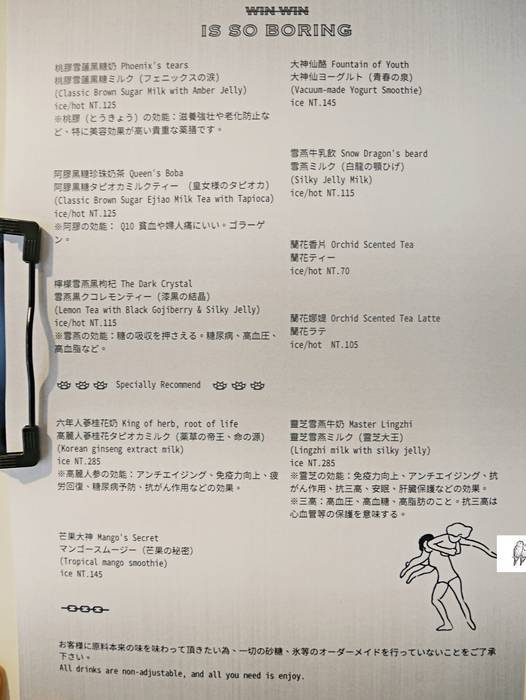 WIN WIN
IS SO BORING
桃膠雪蓮黑糖奶 Phoenix's tears
桃膠雪蓮黒糖ミルク（フェニックスの涙）
(Classic Brown Sugar Milk with Amber Jelly)
ice/hot NT.125
※桃膠（とうきょう）の効能：滋養強壮や老化防止な
ど、特に美容効果が高い貴重な薬膳です。
阿膠黑糖珍珠奶茶 Queen's Boba
阿膠黒糖タピオカミルクティー （皇女様のタピオカ）
(Classic Brown Sugar Ejiao Milk Tea with Tapioca)
ice/hot NT.125
※阿膠の効能： Q10 貧血や婦人痛にいい。ゴラーゲ
ン。
檸檬雪燕黑枸杞 The Dark Crystal
雪燕黒クコレモンティー（漆黒の結晶）
(Lemon Tea with Black Gojiberry & Silky Jelly)
ice/hot NT.115
※雪燕の効能：糖の吸収を押さえる。糖尿病、高血圧、
高血脂など。
Specially Recommend
六年人蔘桂花奶 King of herb, root of life
高麗人蔘桂花タピオカミルク（薬草の帝王、命の源）
(Korean ginseng extract milk)
ice NT.285
※高麗人参の効能：アンチエイジング、免疫力向上、疲
労回復、糖尿病予防、抗がん作用などの効果。
芒果大神 Mango's Secret
マンゴースムージー（芒果の秘密）
(Tropical mango smoothie)
ice NT.145
大神仙酪 Fountain of Youth
大神仙ヨーグルト（青春の泉）
(Vacuum-made Yogurt Smoothie)
ice NT.145
雪燕牛乳飲 Snow Dragon's beard
雪燕ミルク（白龍の顎ひげ）
(Silky Jelly Milk)
ice/hot NT.115
蘭花香片 Orchid Scented Tea
蘭花ティー
ice/hot NT.70
蘭花娜媞 Orchid Scented Tea Latte
蘭花ラテ
ice/hot NT.105
靈芝雪燕牛奶 Master Lingzhi
靈芝雪燕ミルク（靈芝大王）
(Lingzhi milk with silky jelly)
ice NT.285
※靈芝の効能：免疫力向上、アンチエイジング、抗
がん作用、抗三高、安眠、肝臓保護などの効果。
※三高：高血圧、高血糖、高脂肪のこと。抗三高は
心血管等の保護を意味する。
お客様に原料本来の味を味わって頂きたい為、一切の砂糖、氷等のオーダーメイドを行っていないことをご了承
下さい。
All drinks are non-adjustable, and all you need is enjoy.